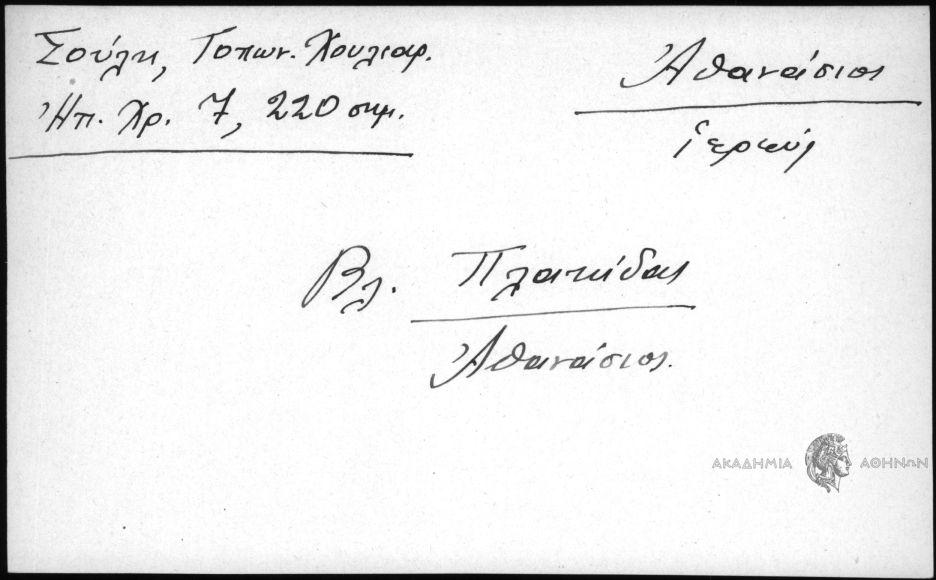 Σούλη, Τοπων. Χουλιαρ.
Ἠπ. Χρ. 7, 220 σημ.
Ἀθανάσιος
ἱερεύς
Βλ. Πλατκίδας
Ἀθανάσιος.
ΑΚΑΔΗΜΙΑ ΑΘΗΝΩΝ